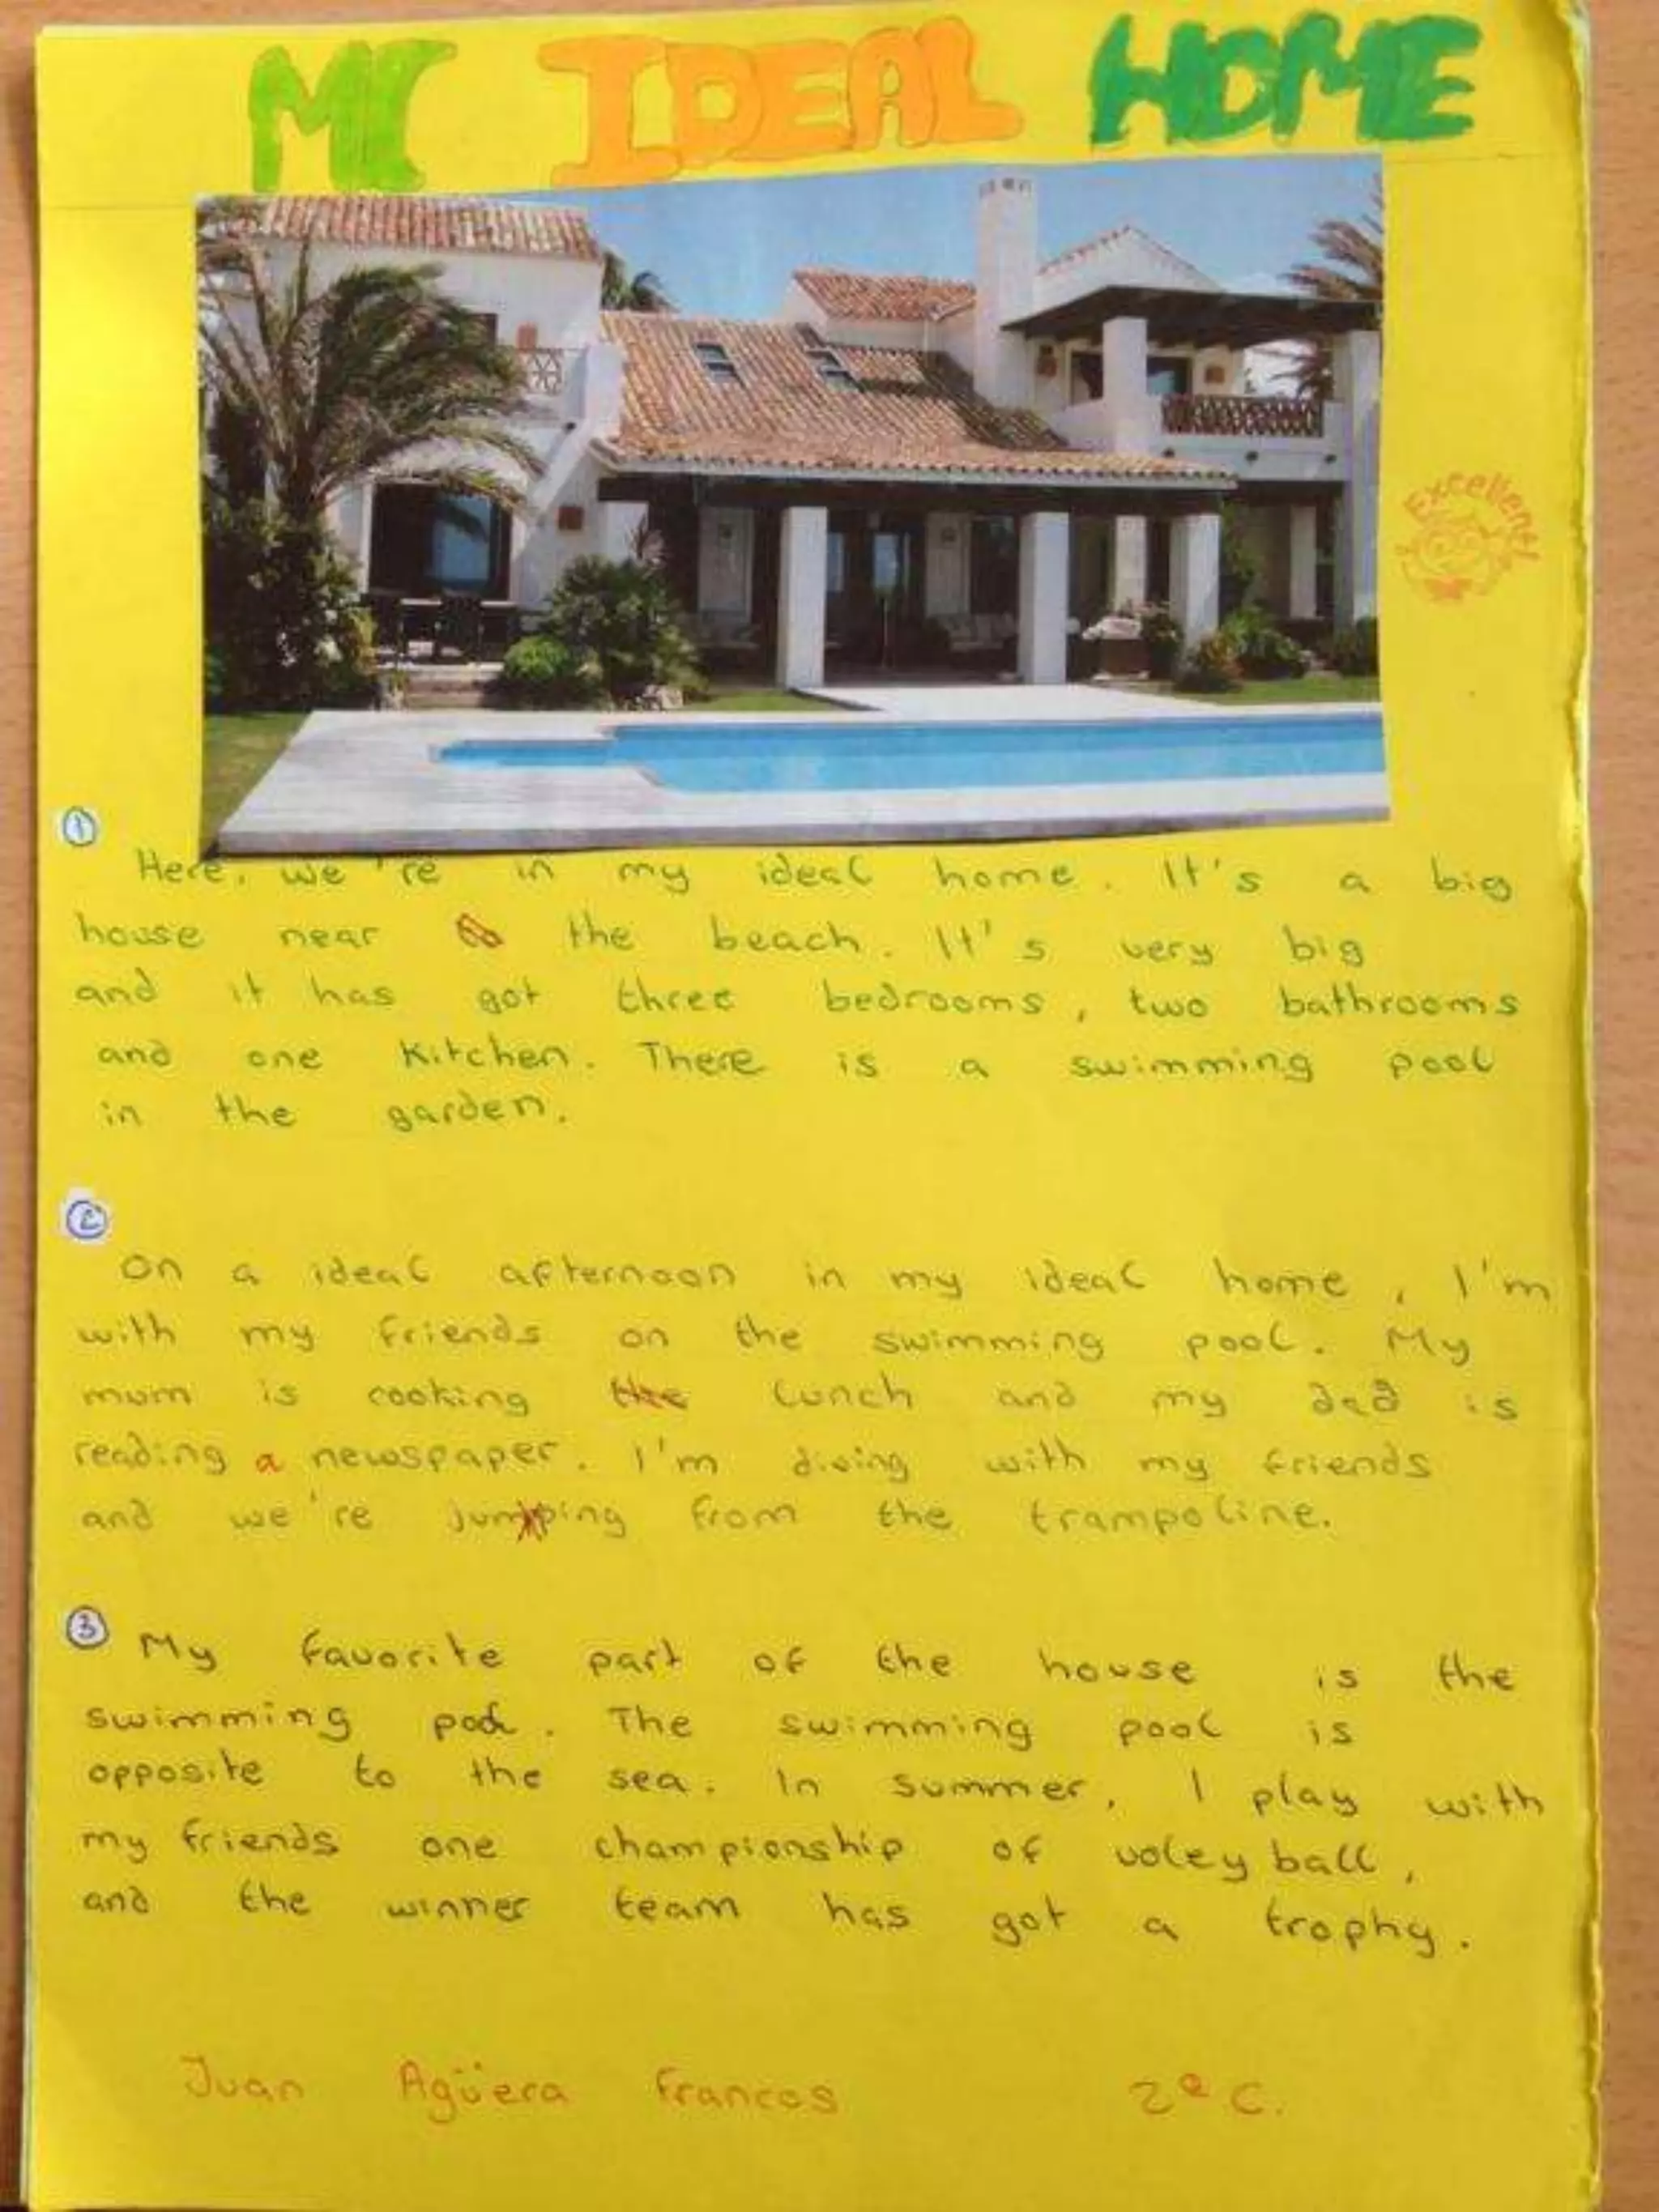 MY IDEAL HOME
Excellent
1
Here, we're in my ideal home. It's a big
house near the beach. It's very big
and it has got three bedrooms, two bathrooms
and one kitchen. There is a swimming pool
in the garden.
2
On a ideal afternoon in my ideal home, I'm
with my friends on the swimming pool. My
mum is cooking the lunch and my dad is
reading a newspaper. I'm diving with my friends
and we're jumping from the trampoline.
3 My favorite part of the house is the
swimming pool. The swimming pool is
opposite to the sea. In summer, I play with
my friends one championship of voleyball,
and the winner team has got a trophy.
Juan Agüera Francos 2º C.